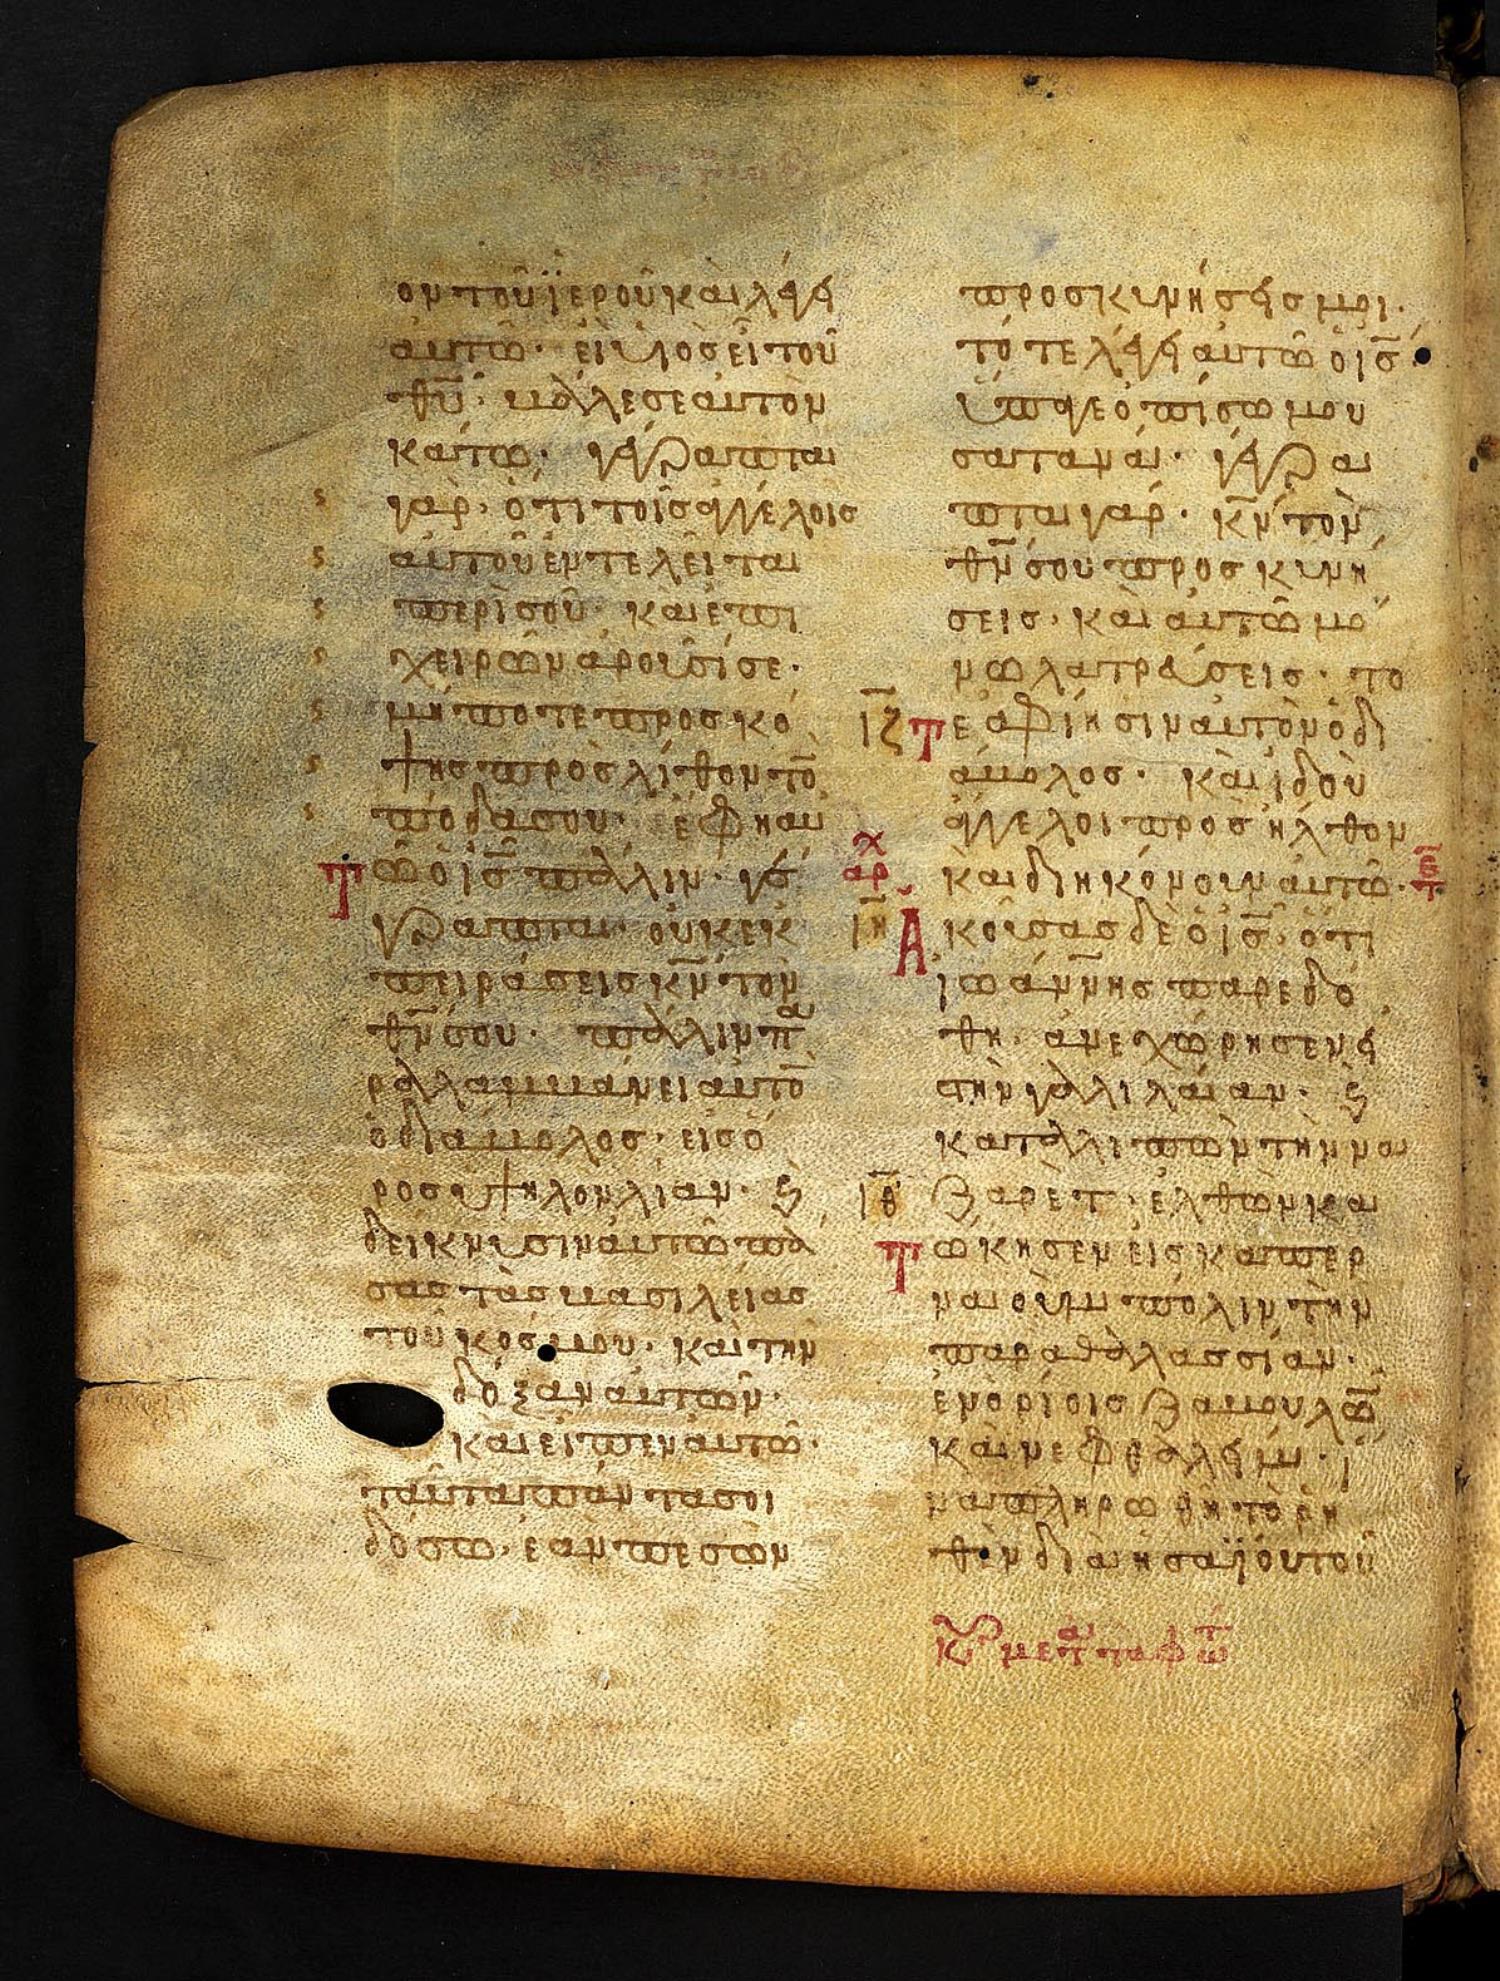 ον τοῦ ϊεροῦ καὶ λέγει
αὐτῶ· εἰ υἱὸς εἶ τοῦ
θυ̅· βάλε σεαυτὸν
κάτω· γέγραπται
γὰρ· ὅτι τοῖς ἀγγέλοις
αὐτοῦ ἐντελεῖται
περὶ σοῦ· καὶ ἐπι
χειρῶν ἀροῦσί σε·
μήποτε προσκό
ψης πρὸς λίθον τὸ̅
πόδα σου· ἔφη αὐ
Τῶ ὁ ις̅ πάλιν· γέ
γραπται· οὐκ ἐκ
πειράσεις κν̅ τὸν
θν̅ σου· πάλιν πα
ραλλαμβάνει αὐτὸ̅
ὁ διάβολος· εἰς ὄ
ρος ὑψηλον λίαν· ϗ
δείκνυσιν αὐτῶ πά
σας τὰς βασιλείας
τοῦ κόσμου· καὶ τὴν
δόξαν αὐτῶν·
καὶ εἶπεν αὐτῶ·
ταῦτα πάντα σοι
δόσω· ἐὰν πεσὼν
προσκυνήσεις μοι·
τότε λέγει αὐτῶ ὁ ις̅·
ὕπαγε ὀπίσω μου
σατανᾶ· γέγρα
πται γάρ· κν̅ τὸν
θν̅ σου προσκυνή
σεις· καὶ αὐτῶ μό
νω λατρεύσεις· το
ιζ̅ Τε ἀφίησιν αὐτὸν ὁ δι
άβολος· καὶ ἰδοὺ
ἄγγελοι προσῆλθον
αρχ καὶ διηκόνουν αὐτῶ·
ιη̅ Ἀκούσας δὲ ὁ ις̅· ὅτι
ἰωάννης παρεδό
θη· ἀνεχώρησεν εἰ
ς τὴν γαλιλαίαν· ϗ
καταλλιπὼν τὴν να
ιθ̅ ζαρὲτ· ἐλθὼν κα
Τώκησεν εἰς καπερ
ναοὺμ πόλιν τὴν
παραθαλασσίαν·
ἐν ὁρίοις ζαβουλὼ̅
καὶ νεφθαλείμ· ἵ
να πληρωθῆ τὸ ῥη
θὲν διὰ ἠσαΐου τοῦ